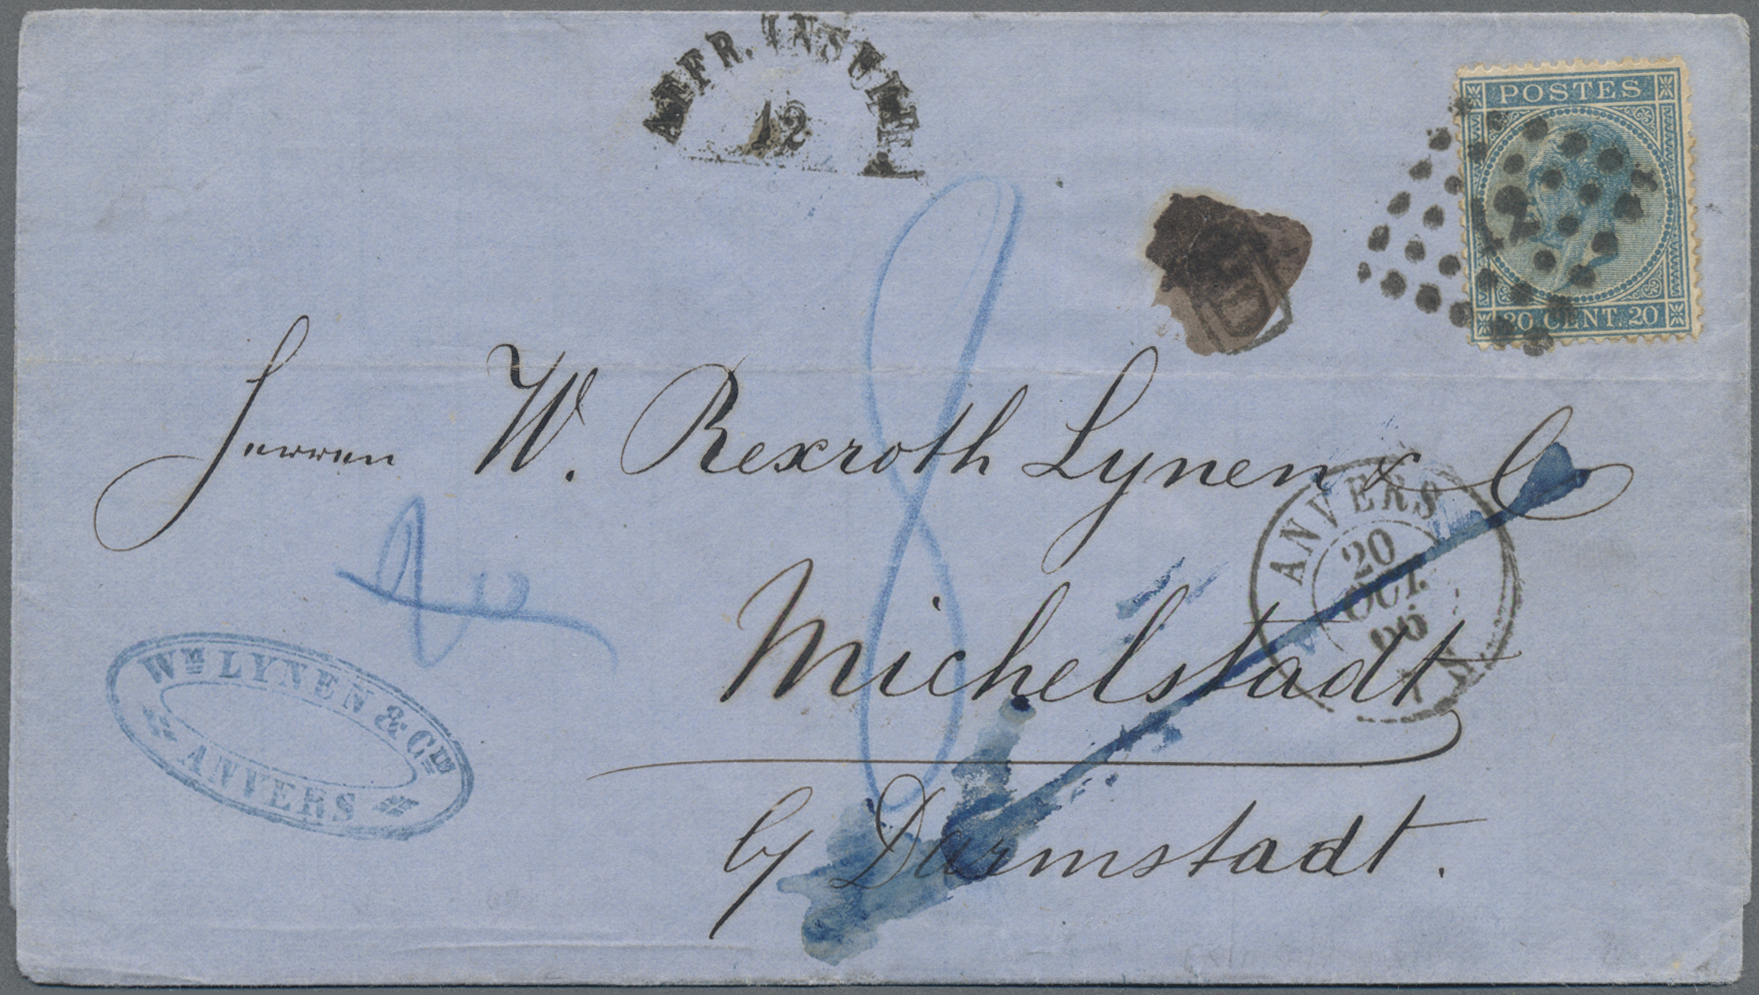 AFFR. INSUFFT
12
POSTES
20 CENT. 20
PD
Herren W. Rexroth Lynen & Co
8
ANVERS
20
OCT.
66
Michelstadt
Wm LYNEN & Co
ANVERS
by Darmstadt.